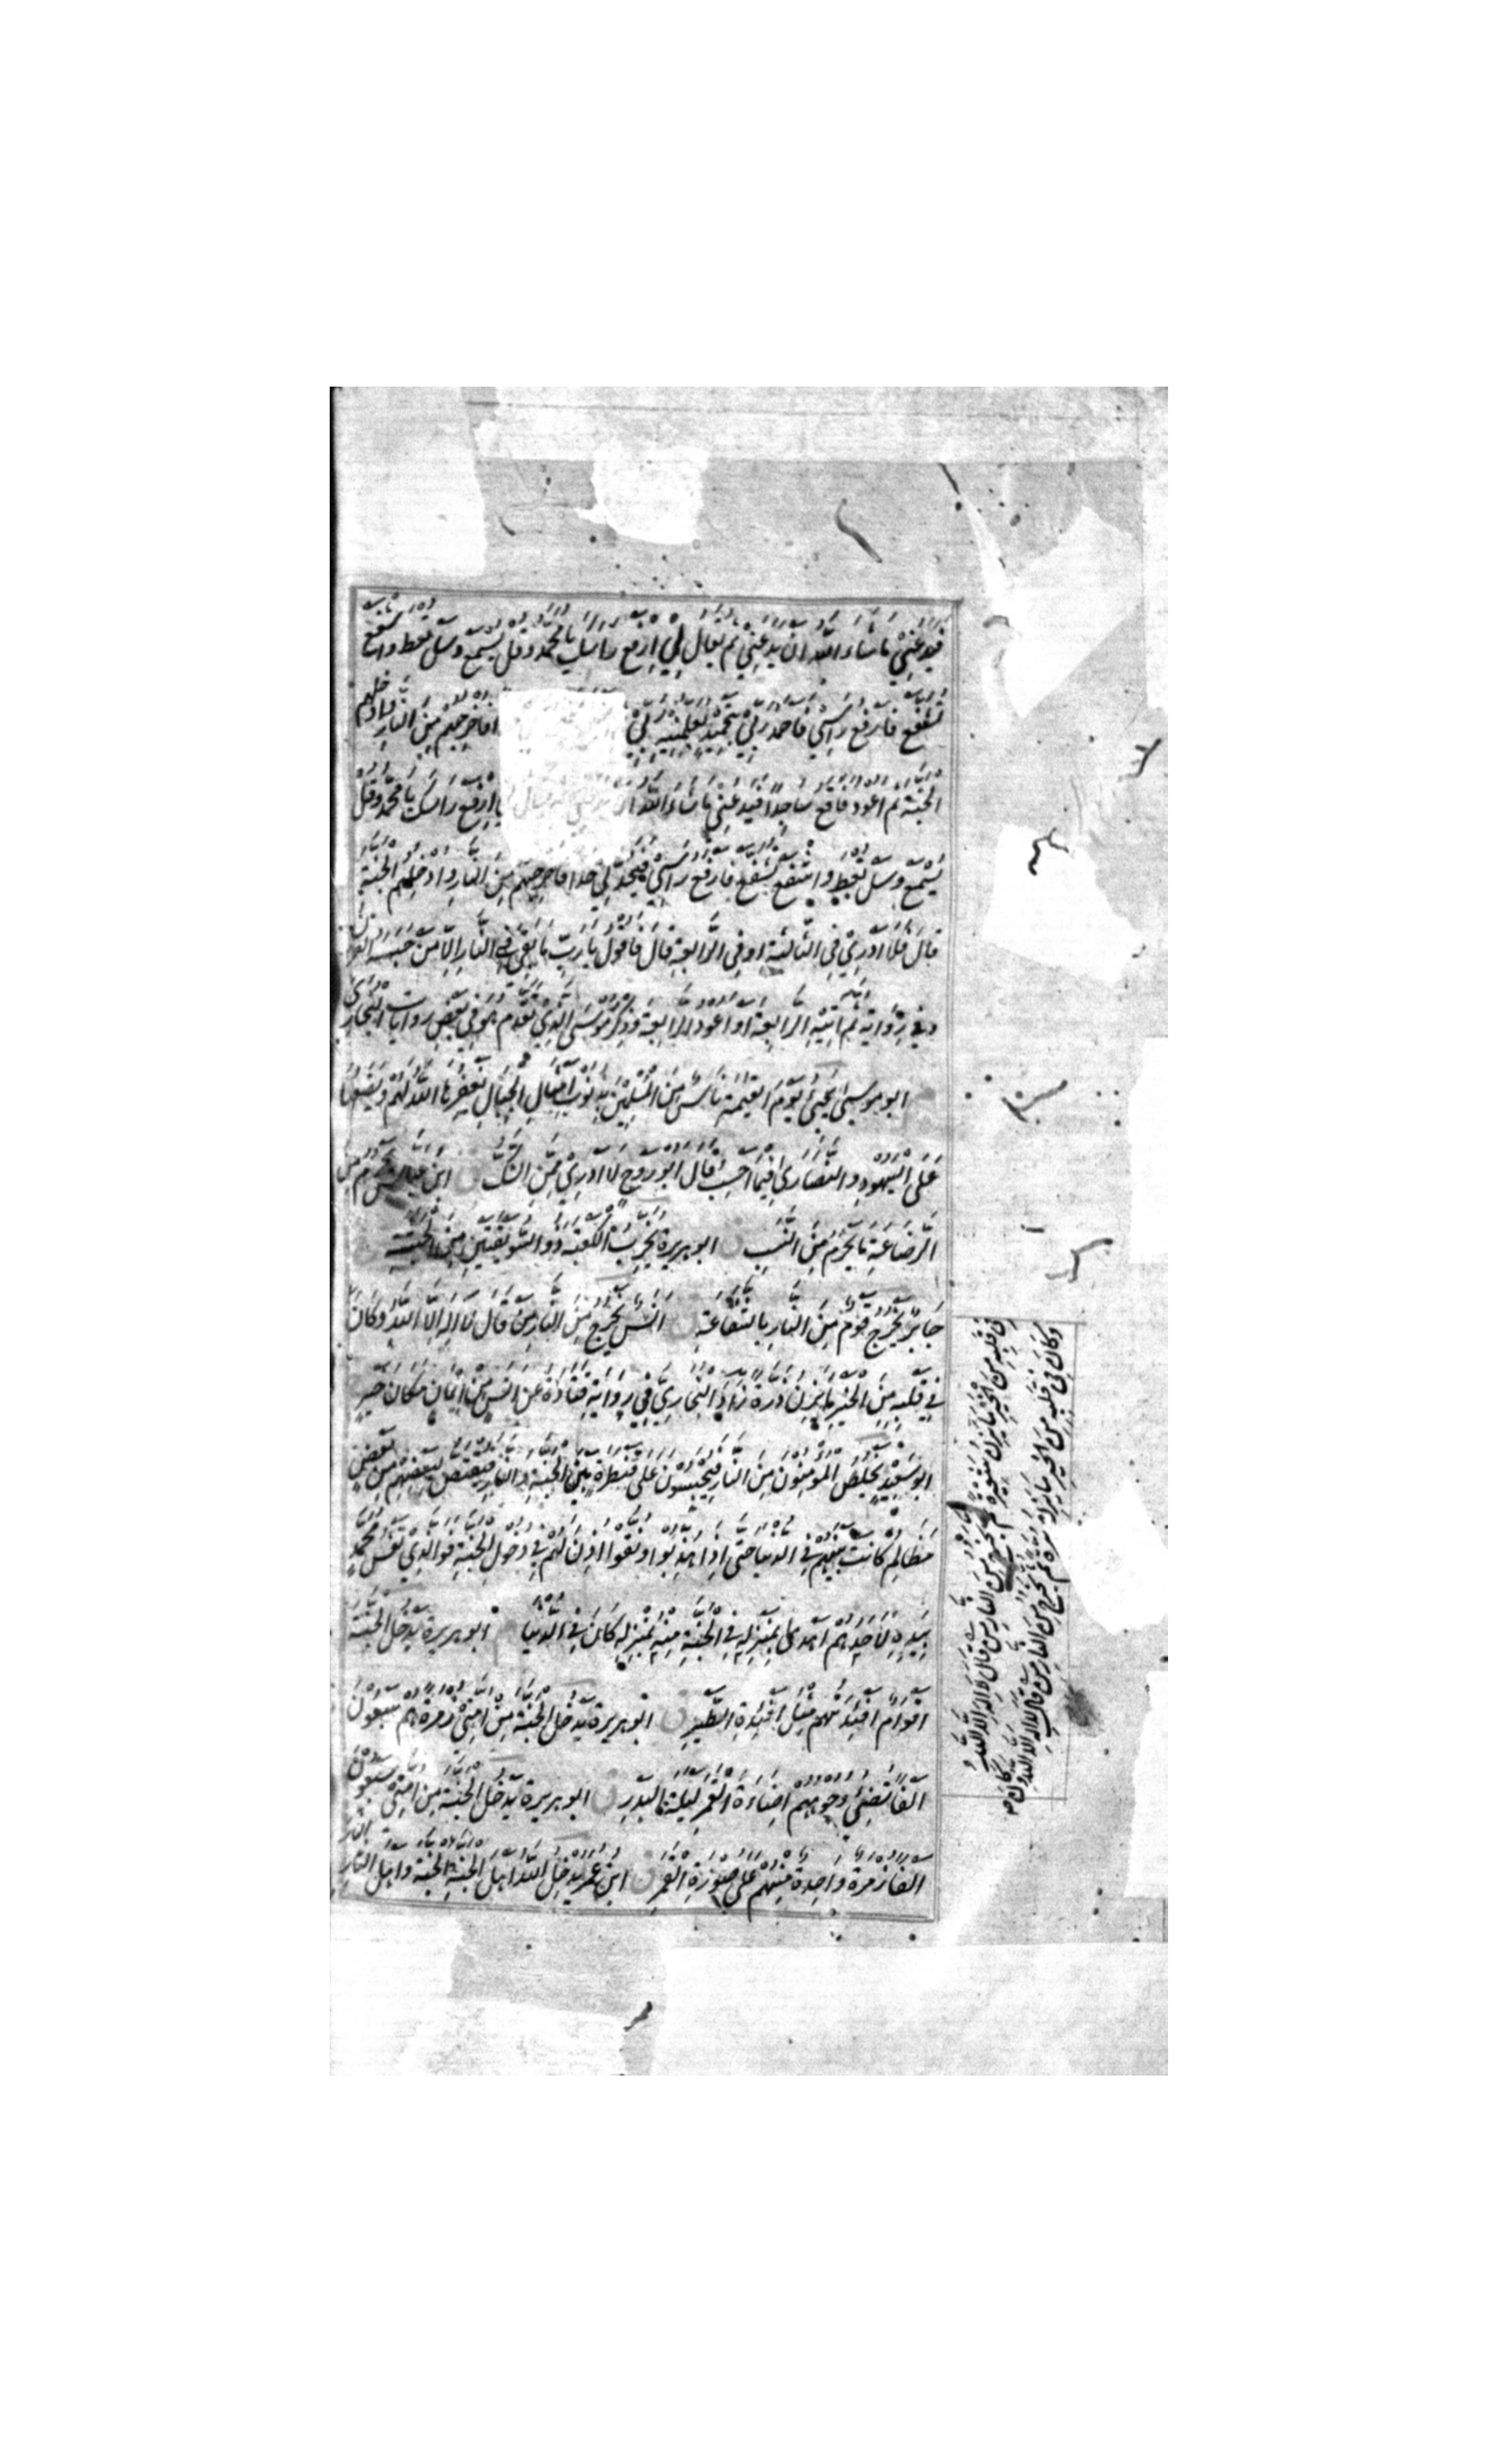 فَيَدَعُنِي مَا شَاءَ اللّٰهُ اَنْ يَدَعَنِي ثُمَّ يُقَالُ لِي اِرْفَعْ رَاسَكَ يَا مُحَمَّدُ وَقُلْ يُسْمَعْ وَسَلْ تُعْطَ وَاشْفَعْ
تُشَفَّعْ فَاَرْفَعُ رَاسِي فَاَحْمَدُ رَبِّي بِتَحْمِيدٍ يُعَلِّمُنِيهِ رَبِّي فَاُخْرِجُهُمْ مِنَ النَّارِ وَاُدْخِلُهُمُ
الْجَنَّةَ ثُمَّ اَعُودُ فَاَقَعُ سَاجِدًا فَيَدَعُنِي مَا شَاءَ اللّٰهُ اَنْ اِرْفَعْ رَاسَكَ يَا مُحَمَّدُ وَقُلْ
يُسْمَعْ وَسَلْ تُعْطَ وَاشْفَعْ تُشَفَّعْ فَاَرْفَعُ رَاسِي فَيَحُدُّ لِي حَدًّا فَاُخْرِجُهُمْ مِنَ النَّارِ وَاُدْخِلُهُمُ الْجَنَّةَ
قَالَ فَلَا اَدْرِي فِي الثَّالِثَةِ اَوْ فِي الرَّابِعَةِ قَالَ فَاَقُولُ يَا رَبِّ مَا بَقِيَ فِي النَّارِ اِلَّا مَنْ حَبَسَهُ الْقُرْاٰنُ
وَفِي رِوَايَةٍ ثُمَّ اٰتِيهِ الرَّابِعَةَ اَوْ اَعُودُ الرَّابِعَةَ وَذِكْرُ مُوسَى الَّذِي تَقَدَّمَ هُوَ فِي بَعْضِ رِوَايَاتِ الْبُخَارِيِّ
اَبُو مُوسٰى يَجِيءُ يَوْمَ الْقِيٰمَةِ نَاسٌ مِنَ الْمُسْلِمِينَ بِذُنُوبٍ اَمْثَالِ الْجِبَالِ يَغْفِرُهَا اللّٰهُ لَهُمْ وَيَضَعُهَا
عَلَى الْيَهُودِ وَالنَّصَارٰى فِيمَا اَحْسِبُ قَالَ اَبُو رَوْحٍ لَا اَدْرِي مِمَّنِ الشَّكُّ ابْنُ عَبَّاسٍ يَحْرُمُ مِنَ
الرَّضَاعَةِ مَا يَحْرُمُ مِنَ النَّسَبِ ق اَبُو هُرَيْرَةَ يُخَرِّبُ الْكَعْبَةَ ذُو السُّوَيْقَتَيْنِ مِنَ الْحَبَشَةِ
جَابِرٌ يَخْرُجُ قَوْمٌ مِنَ النَّارِ بِالشَّفَاعَةِ ق اَنَسٌ يَخْرُجُ مِنَ النَّارِ مَنْ قَالَ لَا اِلٰهَ اِلَّا اللّٰهُ وَكَانَ
فِي قَلْبِهِ مِنَ الْخَيْرِ مَا يَزِنُ ذَرَّةً زَادَ الْبُخَارِيُّ فِي رِوَايَةِ قَتَادَةَ عَنْ اَنَسٍ مِنْ اِيمَانٍ مَكَانَ خَيْرٍ
اَبُو سَعِيدٍ يَخْلُصُ الْمُؤْمِنُونَ مِنَ النَّارِ فَيُحْبَسُونَ عَلٰى قَنْطَرَةٍ بَيْنَ الْجَنَّةِ وَالنَّارِ فَيُقْتَصُّ لِبَعْضِهِمْ مِنْ بَعْضٍ
مَظَالِمُ كَانَتْ بَيْنَهُمْ فِي الدُّنْيَا حَتّٰى اِذَا هُذِّبُوا وَنُقُّوا اُذِنَ لَهُمْ فِي دُخُولِ الْجَنَّةِ فَوَالَّذِي نَفْسُ مُحَمَّدٍ
بِيَدِهِ لَاَحَدُهُمْ اَهْدٰى بِمَنْزِلِهِ فِي الْجَنَّةِ مِنْهُ بِمَنْزِلِهِ كَانَ فِي الدُّنْيَا اَبُو هُرَيْرَةَ يَدْخُلُ الْجَنَّةَ
اَقْوَامٌ اَفْئِدَتُهُمْ مِثْلُ اَفْئِدَةِ الطَّيْرِ ق اَبُو هُرَيْرَةَ يَدْخُلُ الْجَنَّةَ مِنْ اُمَّتِي زُمْرَةٌ هُمْ سَبْعُونَ
اَلْفًا تُضِيءُ وُجُوهُهُمْ اِضَاءَةَ الْقَمَرِ لَيْلَةَ الْبَدْرِ ق اَبُو هُرَيْرَةَ يَدْخُلُ الْجَنَّةَ مِنْ اُمَّتِي سَبْعُونَ
اَلْفًا زُمْرَةً وَاحِدَةً مِنْهُمْ عَلٰى صُورَةِ الْقَمَرِ ق ابْنُ عُمَرَ يُدْخِلُ اللّٰهُ اَهْلَ الْجَنَّةِ الْجَنَّةَ وَاَهْلَ النَّارِ
النَّارَ
فِي قَلْبِهِ مِنَ الْخَيْرِ مَا يَزِنُ شَعِيرَةً ثُمَّ يَخْرُجُ مِنَ النَّارِ مَنْ قَالَ لَا اِلٰهَ اِلَّا اللّٰهُ
وَكَانَ فِي قَلْبِهِ مِنَ الْخَيْرِ مَا يَزِنُ بُرَّةً ثُمَّ يَخْرُجُ مِنَ النَّارِ مَنْ قَالَ لَا اِلٰهَ اِلَّا اللّٰهُ وَكَانَ